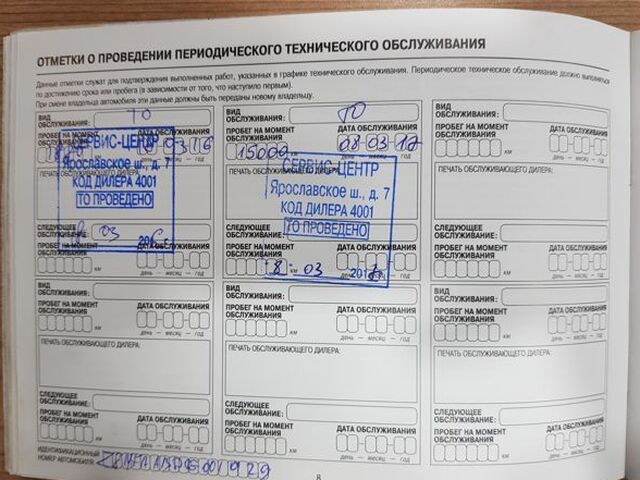 ОТМЕТКИ О ПРОВЕДЕНИИ ПЕРИОДИЧЕСКОГО ТЕХНИЧЕСКОГО ОБСЛУЖИВАНИЯ
Данные отметки служат для подтверждения выполненных работ, указанных в графике технического обслуживания. Периодическое техническое обслуживание должно выполняться
по достижению срока или пробега (в зависимости от того, что наступило первым).
При смене владельца автомобиля эти данные должны быть переданы новому владельцу.
ВИД ОБСЛУЖИВАНИЯ: ТО
ПРОБЕГ НА МОМЕНТ ДАТА ОБСЛУЖИВАНИЯ
ОБСЛУЖИВАНИЯ 03 16
СЕРВИС-ЦЕНТР
Ярославское ш., д. 7
КОД ДИЛЕРА 4001
ТО ПРОВЕДЕНО
03 201
СЛЕДУЮЩЕЕ
ОБСЛУЖИВАНИЕ:
ПРОБЕГ НА МОМЕНТ ДАТА ОБСЛУЖИВАНИЯ
ОБСЛУЖИВАНИЯ
км день — месяц — год
ВИД
ОБСЛУЖИВАНИЯ: ТО
ПРОБЕГ НА МОМЕНТ ДАТА ОБСЛУЖИВАНИЯ
ОБСЛУЖИВАНИЯ
15000 08 03 17
СЕРВИС-ЦЕНТР
ПЕЧАТЬ ОБСЛУЖИВАЮЩЕГО ДИЛЕРА:
Ярославское ш., д. 7
КОД ДИЛЕРА 4001
ТО ПРОВЕДЕНО
СЛЕДУЮЩЕЕ
ОБСЛУЖИВАНИЕ:
ПРОБЕГ НА МОМЕНТ ДАТА ОБСЛУЖИВАНИЯ
ОБСЛУЖИВАНИЯ
8 03 201
км день — месяц — год
ВИД
ОБСЛУЖИВАНИЯ:
ПРОБЕГ НА МОМЕНТ ДАТА ОБСЛУЖИВАНИЯ
ОБСЛУЖИВАНИЯ
км день — месяц — год
ПЕЧАТЬ ОБСЛУЖИВАЮЩЕГО ДИЛЕРА:
СЛЕДУЮЩЕЕ
ОБСЛУЖИВАНИЕ:
ПРОБЕГ НА МОМЕНТ ДАТА ОБСЛУЖИВАНИЯ
ОБСЛУЖИВАНИЯ
км день — месяц — год
ВИД
ОБСЛУЖИВАНИЯ:
ПРОБЕГ НА МОМЕНТ ДАТА ОБСЛУЖИВАНИЯ
ОБСЛУЖИВАНИЯ
км день — месяц — год
ПЕЧАТЬ ОБСЛУЖИВАЮЩЕГО ДИЛЕРА:
СЛЕДУЮЩЕЕ
ОБСЛУЖИВАНИЕ:
ПРОБЕГ НА МОМЕНТ ДАТА ОБСЛУЖИВАНИЯ
ОБСЛУЖИВАНИЯ
км день — месяц — год
ВИД
ОБСЛУЖИВАНИЯ:
ПРОБЕГ НА МОМЕНТ ДАТА ОБСЛУЖИВАНИЯ
ОБСЛУЖИВАНИЯ
км день — месяц — год
ПЕЧАТЬ ОБСЛУЖИВАЮЩЕГО ДИЛЕРА:
СЛЕДУЮЩЕЕ
ОБСЛУЖИВАНИЕ:
ПРОБЕГ НА МОМЕНТ ДАТА ОБСЛУЖИВАНИЯ
ОБСЛУЖИВАНИЯ
км день — месяц — год
ВИД
ОБСЛУЖИВАНИЯ:
ПРОБЕГ НА МОМЕНТ ДАТА ОБСЛУЖИВАНИЯ
ОБСЛУЖИВАНИЯ
км день — месяц — год
ПЕЧАТЬ ОБСЛУЖИВАЮЩЕГО ДИЛЕРА:
СЛЕДУЮЩЕЕ
ОБСЛУЖИВАНИЕ:
ПРОБЕГ НА МОМЕНТ ДАТА ОБСЛУЖИВАНИЯ
ОБСЛУЖИВАНИЯ
км день — месяц — год
ИДЕНТИФИКАЦИОННЫЙ
НОМЕР АВТОМОБИЛЯ:
8